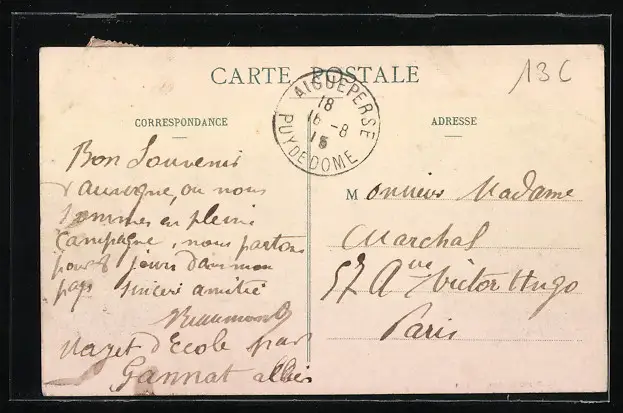 CARTE POSTALE
13C
AIGUEPERSE
18
16 -8
15
PUY DE DOME
CORRESPONDANCE
ADRESSE
Bon Souvenir
d'auvergne, ou nous
sommes en pleine
Campagne, nous partons
pour 8 jours dans mon
pays sincère amitié
Beaumont
Mazet d'Ecole par
Gannat allier
Monsieur Madame
Marchal
57 Aue Victor Hugo
Paris